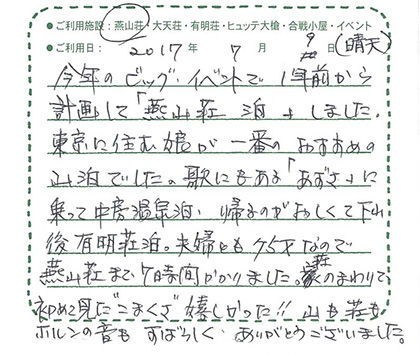 ●ご利用施設：燕山荘・大天荘・有明荘・ヒュッテ大槍・合戦小屋・イベント
●ご利用日： 2017年 7月 9日 (晴天)
今年のビッグ・イベントで1年前から
計画して「燕山荘 泊」しました。
東京に住む娘が一番のおすすめの
山泊でした。歌にもある「あずさ」に
乗って中房温泉泊、帰るのがおしくて下山
後有明荘泊。夫婦とも75才なので
燕山荘まで7時間かかりました。荘のまわりで
初めて見た"こまくさ"嬉しかった!! 山も荘も
ホルンの音も すばらしく ありがとうございました。